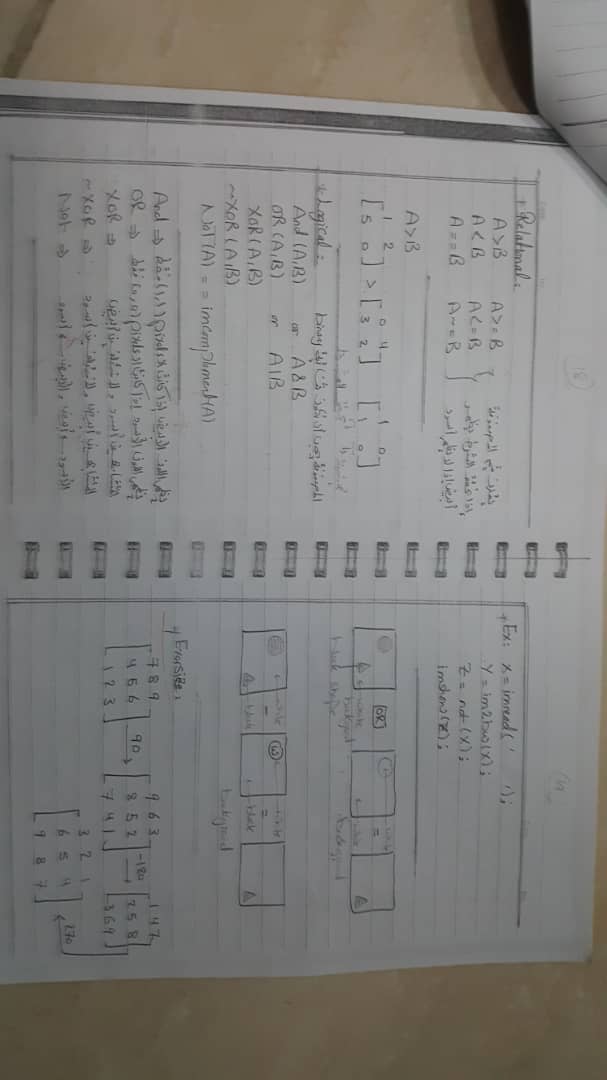 18
* Relational:
A>B A>=B
A<B A<=B
A==B A~=B
يقارن قيم المصفوفة
إذا تحقق الشرط يظهر
أبيض إذا لا يظهر أسود
A>B
[1 2
5 0] > [0 4
3 2] [1 0
1 0]
* Logical:
المصفوفة يجب أن تكون binary
And(A,B) or A&B
OR(A,B) or A|B
XOR(A,B)
~XOR(A,B)
NOT(A) == imcomplement(A)
And ⇒ يظهر اللون الأبيض إذا كانت pixel (1,1) فقط
OR ⇒ يظهر اللون الأسود إذا كانت pixel (0,0) فقط
XOR ⇒ المتشابهين أسود والمختلفين أبيض
~XOR ⇒ المتشابهين أبيض والمختلفين أسود
Not ⇒ الأسود → أبيض والأبيض → أسود
19
* Ex: X = imread(' ');
Y = im2bw(X);
Z = not(X);
imshow(Z);
OR white =
white white
background background
black shape
white - W white =
black black
background
* Exersise:
[7 8 9
4 5 6
1 2 3] 90→ [9 6 3
8 5 2
7 4 1] -180→ [1 4 7
2 5 8
3 6 9]
270
[3 2 1
6 5 4
9 8 7]